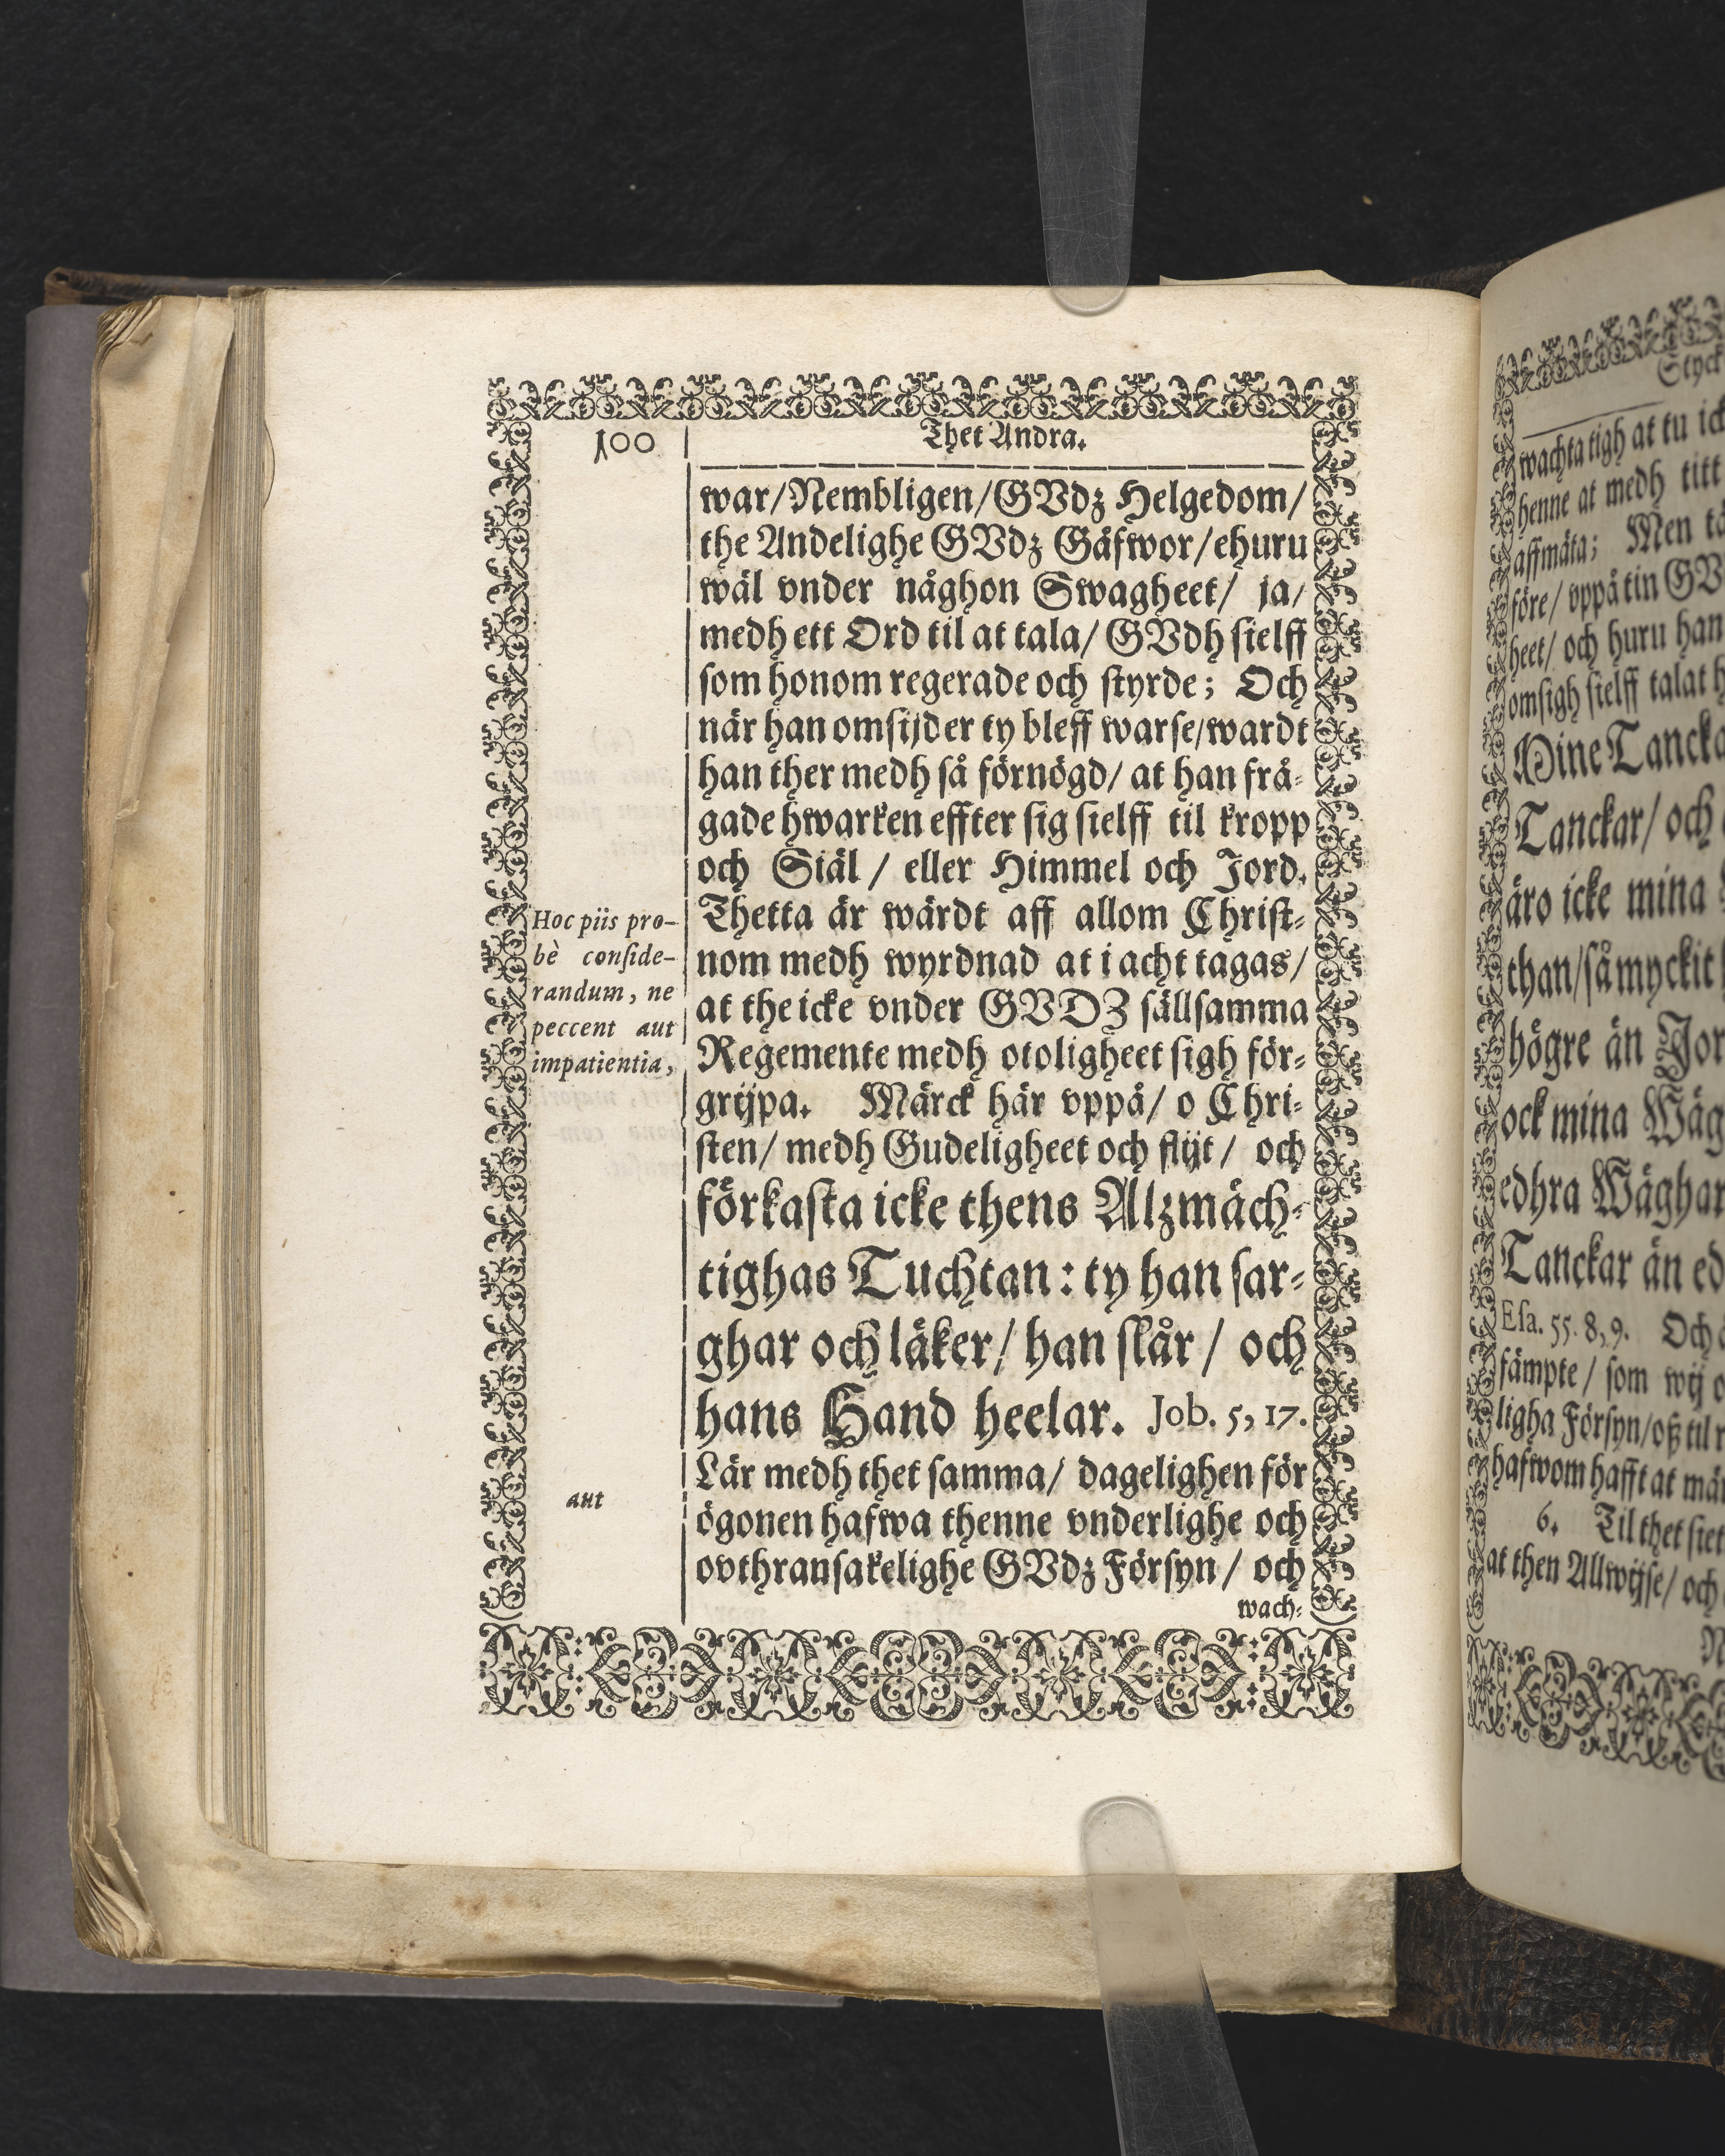 100
Thet Andra.
war/Nembligen/GVdz Helgedom/
the Andelighe GVdz Gäfwor/ehuru
wäl vnder någhon Swagheet/ ja/
medh ett Ord til at tala/ GVdh sielff
som honom regerade och styrde; Och
när han omsijder ty bleff warse/wardt
han ther medh så förnögd/ at han frå-
gade hwarken effter sig sielff til kropp
och Siäl / eller Himmel och Jord.
Thetta är wärdt aff allom Christ-
nom medh wyrdnad at i acht tagas/
at the icke vnder GVDZ sällsamma
Regemente medh otoligheet sigh för-
grijpa. Märck här vppå/ o Chri-
sten/ medh Gudeligheet och flijt / och
förkasta icke thens Alzmäch-
tighas Tuchtan: ty han sar-
ghar och läker/ han slår / och
hans Hand heelar. Job. 5, 17.
Lär medh thet samma/ dagelighen för
ögonen hafwa thenne vnderlighe och
ovthransakelighe GVdz Försyn / och
wach-
Hoc piis pro-
bè conside-
randum, ne
peccent aut
impatientia,
aut
Styck
wachta tigh at tu ick
henne at medh titt
affmäta; Men
före/ vppå tin GV
heet/ och huru han
om sigh sielff talat
Mine Tancka
Tanckar/ och
äro icke mina
than/så myckit
högre än Jor
ock mina Wäg
edhra Wäghar
Tanckar än ed
Esa. 55. 8, 9. Och
kämpte/ som wij
ligha Försyn/oß til
hafwom hafft at mär
6. Til thet siet
at then Allwijse/ och